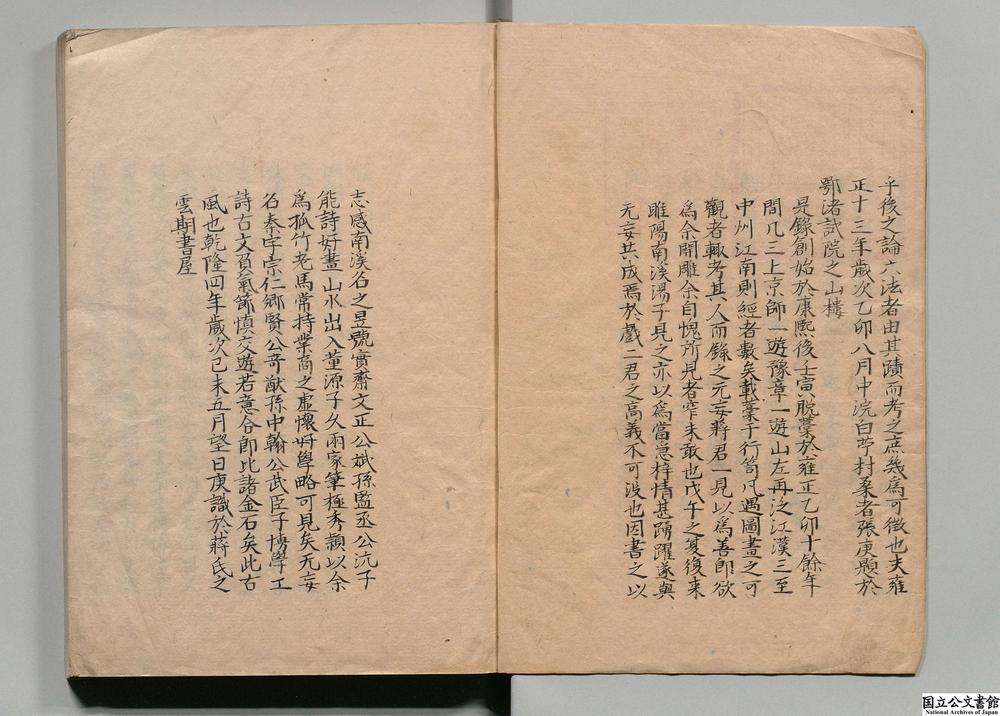 乎後之論六法者由其蹟而考之庶幾爲可徵也夫雍
正十三年歲次乙卯八月中浣白苧村桑者張庚題於
鄂渚試院之山樓
是錄創始於康熙後壬寅脫藁於雍正乙卯十餘年
間凡三上京師一遊豫章一遊山左再泛江漢三至
中州江南則經者數矣載藁于行笥凡遇圖畫之可
觀者輒考其人而錄之无妄蔣君一見以爲善即欲
爲余開雕余自愧所見者窄未敢也戊午之夏復来
睢陽南溪湯子見之亦以爲當急梓情甚踴躍遂與
无妄共成焉於戲二君之高義不可没也因書之以
志感南溪名之昱號實齋文正公斌孫監丞公沆子
能詩好畫山水出入董源子久兩家筆極秀穎以余
爲孤竹老馬常持業商之虛懷好學略可見矣无妄
名泰字宗仁鄉賢公奇猷孫中翰公武臣子博學工
詩古文負氣節慎交遊若意合即比諸金石矣此古
風也乾隆四年歲次己未五月望日庚識於蔣氏之
雲期書屋
国立公文書館
National Archives of Japan